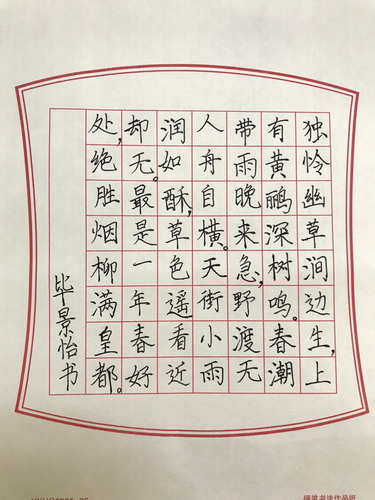 独怜幽草涧边生,上
有黄鹂深树鸣。春潮
带雨晚来急,野渡无
人舟自横。天街小雨
润如酥,草色遥看近
却无。最是一年春好
处,绝胜烟柳满皇都。
毕景怡书
硬笔书法作品纸